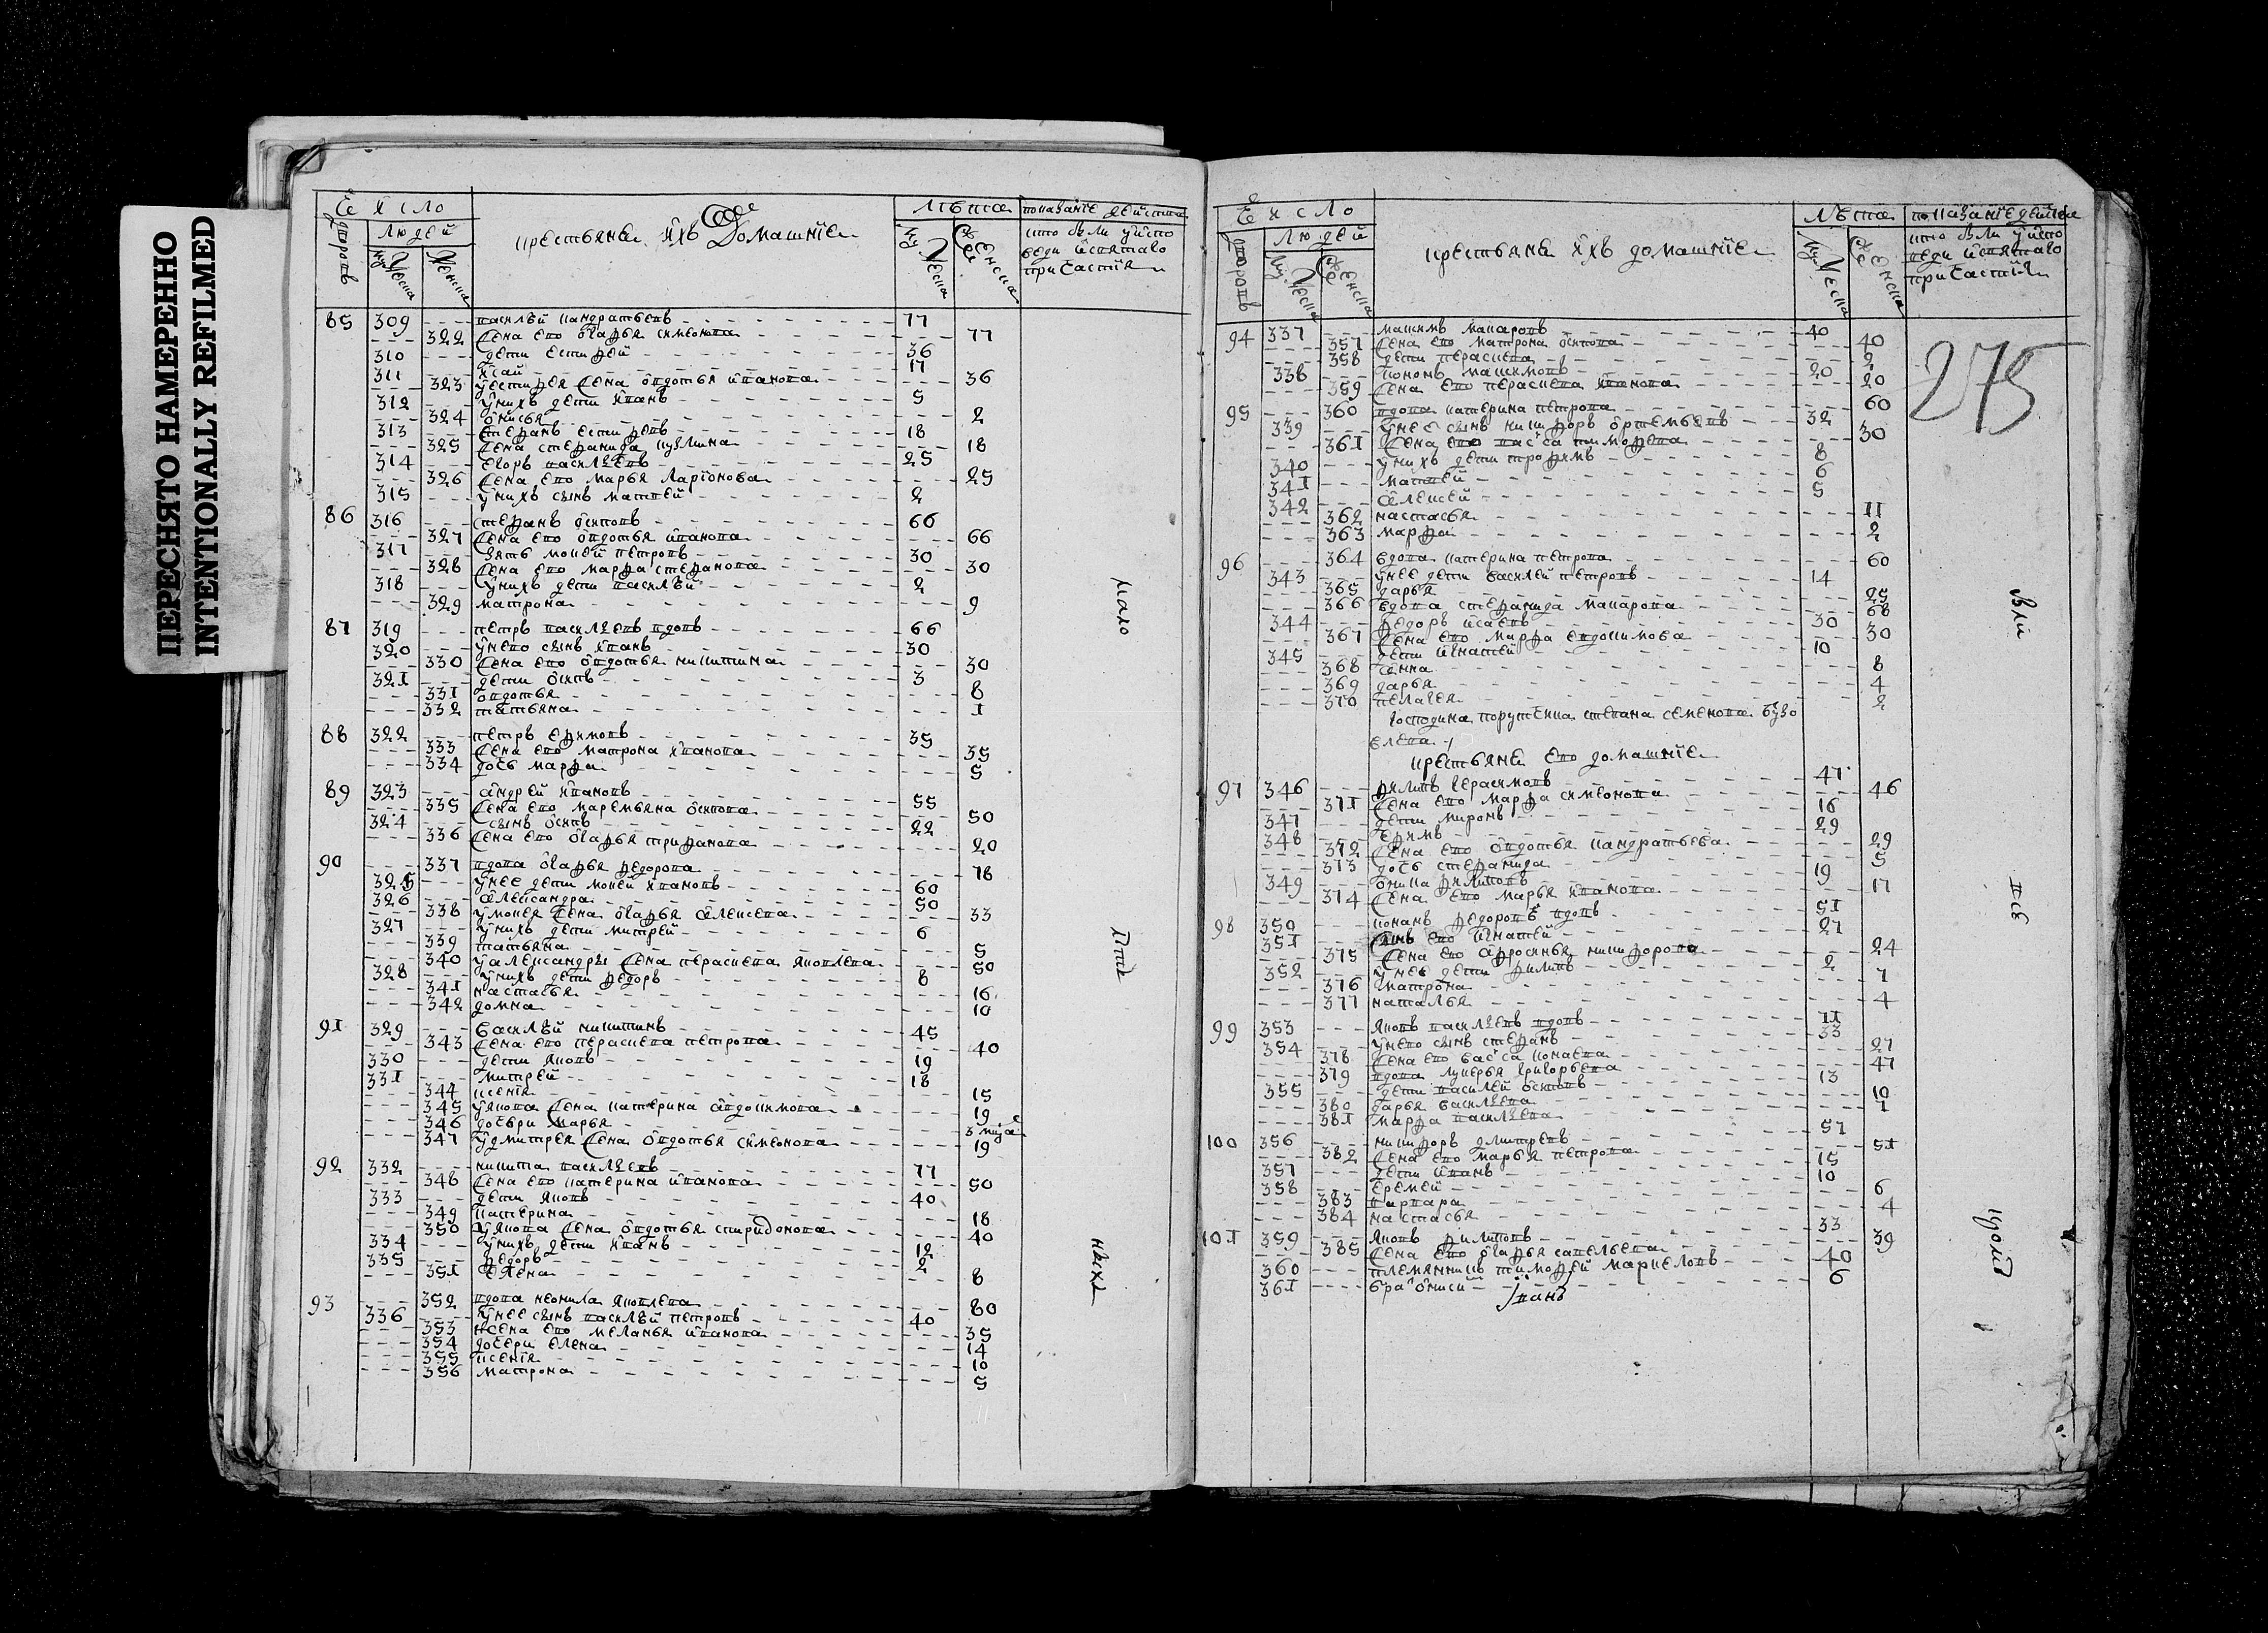 ПЕРЕСНЯТО НАМЕРЕННО
INTENTIONALLY REFILMED
число лѣта показание действа
дворовъ людей крестьяне ихъ домашніе кто были у испо
веди и святаго
мужеска женска мужеска женска причастия
85 309 василѣй кандратьевъ 77
322 жена ево огафья симеонова 77
310 дети естифей 36
311 исай 17
323 у естифея жена овдотья иванова 36
312 у нихъ дети иванъ 5
324 онисья 2
313 стефанъ естифевъ 18
325 жена стефанида кузмина 18
314 егоръ василѣевъ 25
326 жена ево марья ларіонова 25
315 у нихъ сынъ матвей 2
86 316 стефанъ осиповъ 66
327 жена ево овдотья иванова 66
317 зять мокей петровъ 30
328 жена ево марфа стефанова 30
318 у нихъ дети василѣй 2
329 матрона 9
87 319 петръ василѣевъ вдовъ 66
320 у нево сынъ иванъ 30
330 жена ево овдотья никитина 30
321 дети осипъ 3
331 овдотья 8
332 татьяна 1
88 322 петръ ефимовъ 35
333 жена ево матрона иванова 35
334 дочь марфа 5
89 323 андрей ивановъ 55
335 жена ево маремьяна осипова 50
324 сынъ осипъ 22
336 жена ево огафья трифанова 20
90 337 вдова огафья федорова 78
325 у нее дети мокей ивановъ 60
326 александра 50
338 у мокея жена огафья алексева 33
327 у нихъ дети митрей 6
339 татьяна 5
340 у александры жена перасковья яковлева 50
328 у нихъ дети федоръ 8
341 настасья 16
342 домна 10
91 329 василѣй никитинъ 45
343 жена ево пераскева петрова 40
330 дети яковъ 19
331 митрей 18
344 ксения 15
345 у якова жена катерина авдокимова 19
346 дочери марья 3
347 у дмитрея жена овдотья симеонова 19
92 332 никита василѣевъ 77
348 жена ево катерина иванова 50
333 дети яковъ 40
349 катерина 18
350 у якова жена овдотья спиридонова 40
334 у нихъ дети иванъ 12
335 федоръ 2
351 елена 8
93 352 вдова неонила яковлева 80
336 у нее сынъ василѣй петровъ 40
353 жена ево меланья иванова 35
354 дочери елена 14
355 ксения 10
356 матрона 5
число лѣта показание действа
дворовъ людей крестьяне ихъ домашніе кто были у испо
веди и святаго
мужеска женска мужеска женска причастия
275
94 337 максимъ макаровъ 40
357 жена ево матрона осипова 40
358 дети пераскева 2
338 кононъ максимовъ 20
359 жена ево пераскева иванова 20
95 360 вдова катерина петрова 60
339 у нее сынъ никифоръ ортемьевъ 32
361 жена ево васса тимофева 30
340 у нихъ дети трофимъ 8
341 матвей 6
342 алексей 5
362 настасья 11
363 марфа 2
96 364 вдова катерина петрова 60
343 у нее дети василей петровъ 14
365 дарья 25
366 вдова стефанида макарова 68
344 федоръ исаевъ 30
367 жена ево марфа евдокимова 30
345 дети игнатей 10
368 анна 8
369 дарья 4
370 пелагея 2
господина порутчика степана семенова бузо
елева
крестьяне ево домашніе
97 346 филипъ герасимовъ 47
371 жена ево марфа симеонова 46
347 дети миронъ 16
348 ефимъ 29
372 жена ево овдотья кандратьева 29
373 дочь стефанида 5
349 фока филиповъ 19
374 жена ево марья иванова 17
98 350 конанъ федоровъ вдовъ 51
351 сынъ ево игнатей 27
375 жена ево афросинья никифорова 24
352 у нее дети филипъ 2
376 матрона 7
377 наталья 4
99 353 яковъ василѣевъ вдовъ 11
354 у нево сынъ стефанъ 33
378 жена ево васса конаева 27
379 вдова лукерья григорьева 47
355 дети василей осиповъ 13
380 дарья василѣева 10
381 марфа василѣева 1
100 356 никифоръ дмитревъ 57
382 жена ево марья петрова 51
357 дети иванъ 15
358 еремей 10
383 варвара 6
384 настасья 4
101 359 яковъ филиповъ 33
385 жена ево огафья савельева 39
360 племянникъ тимофей маркеловъ 40
361 бра онисий 6
іванъ